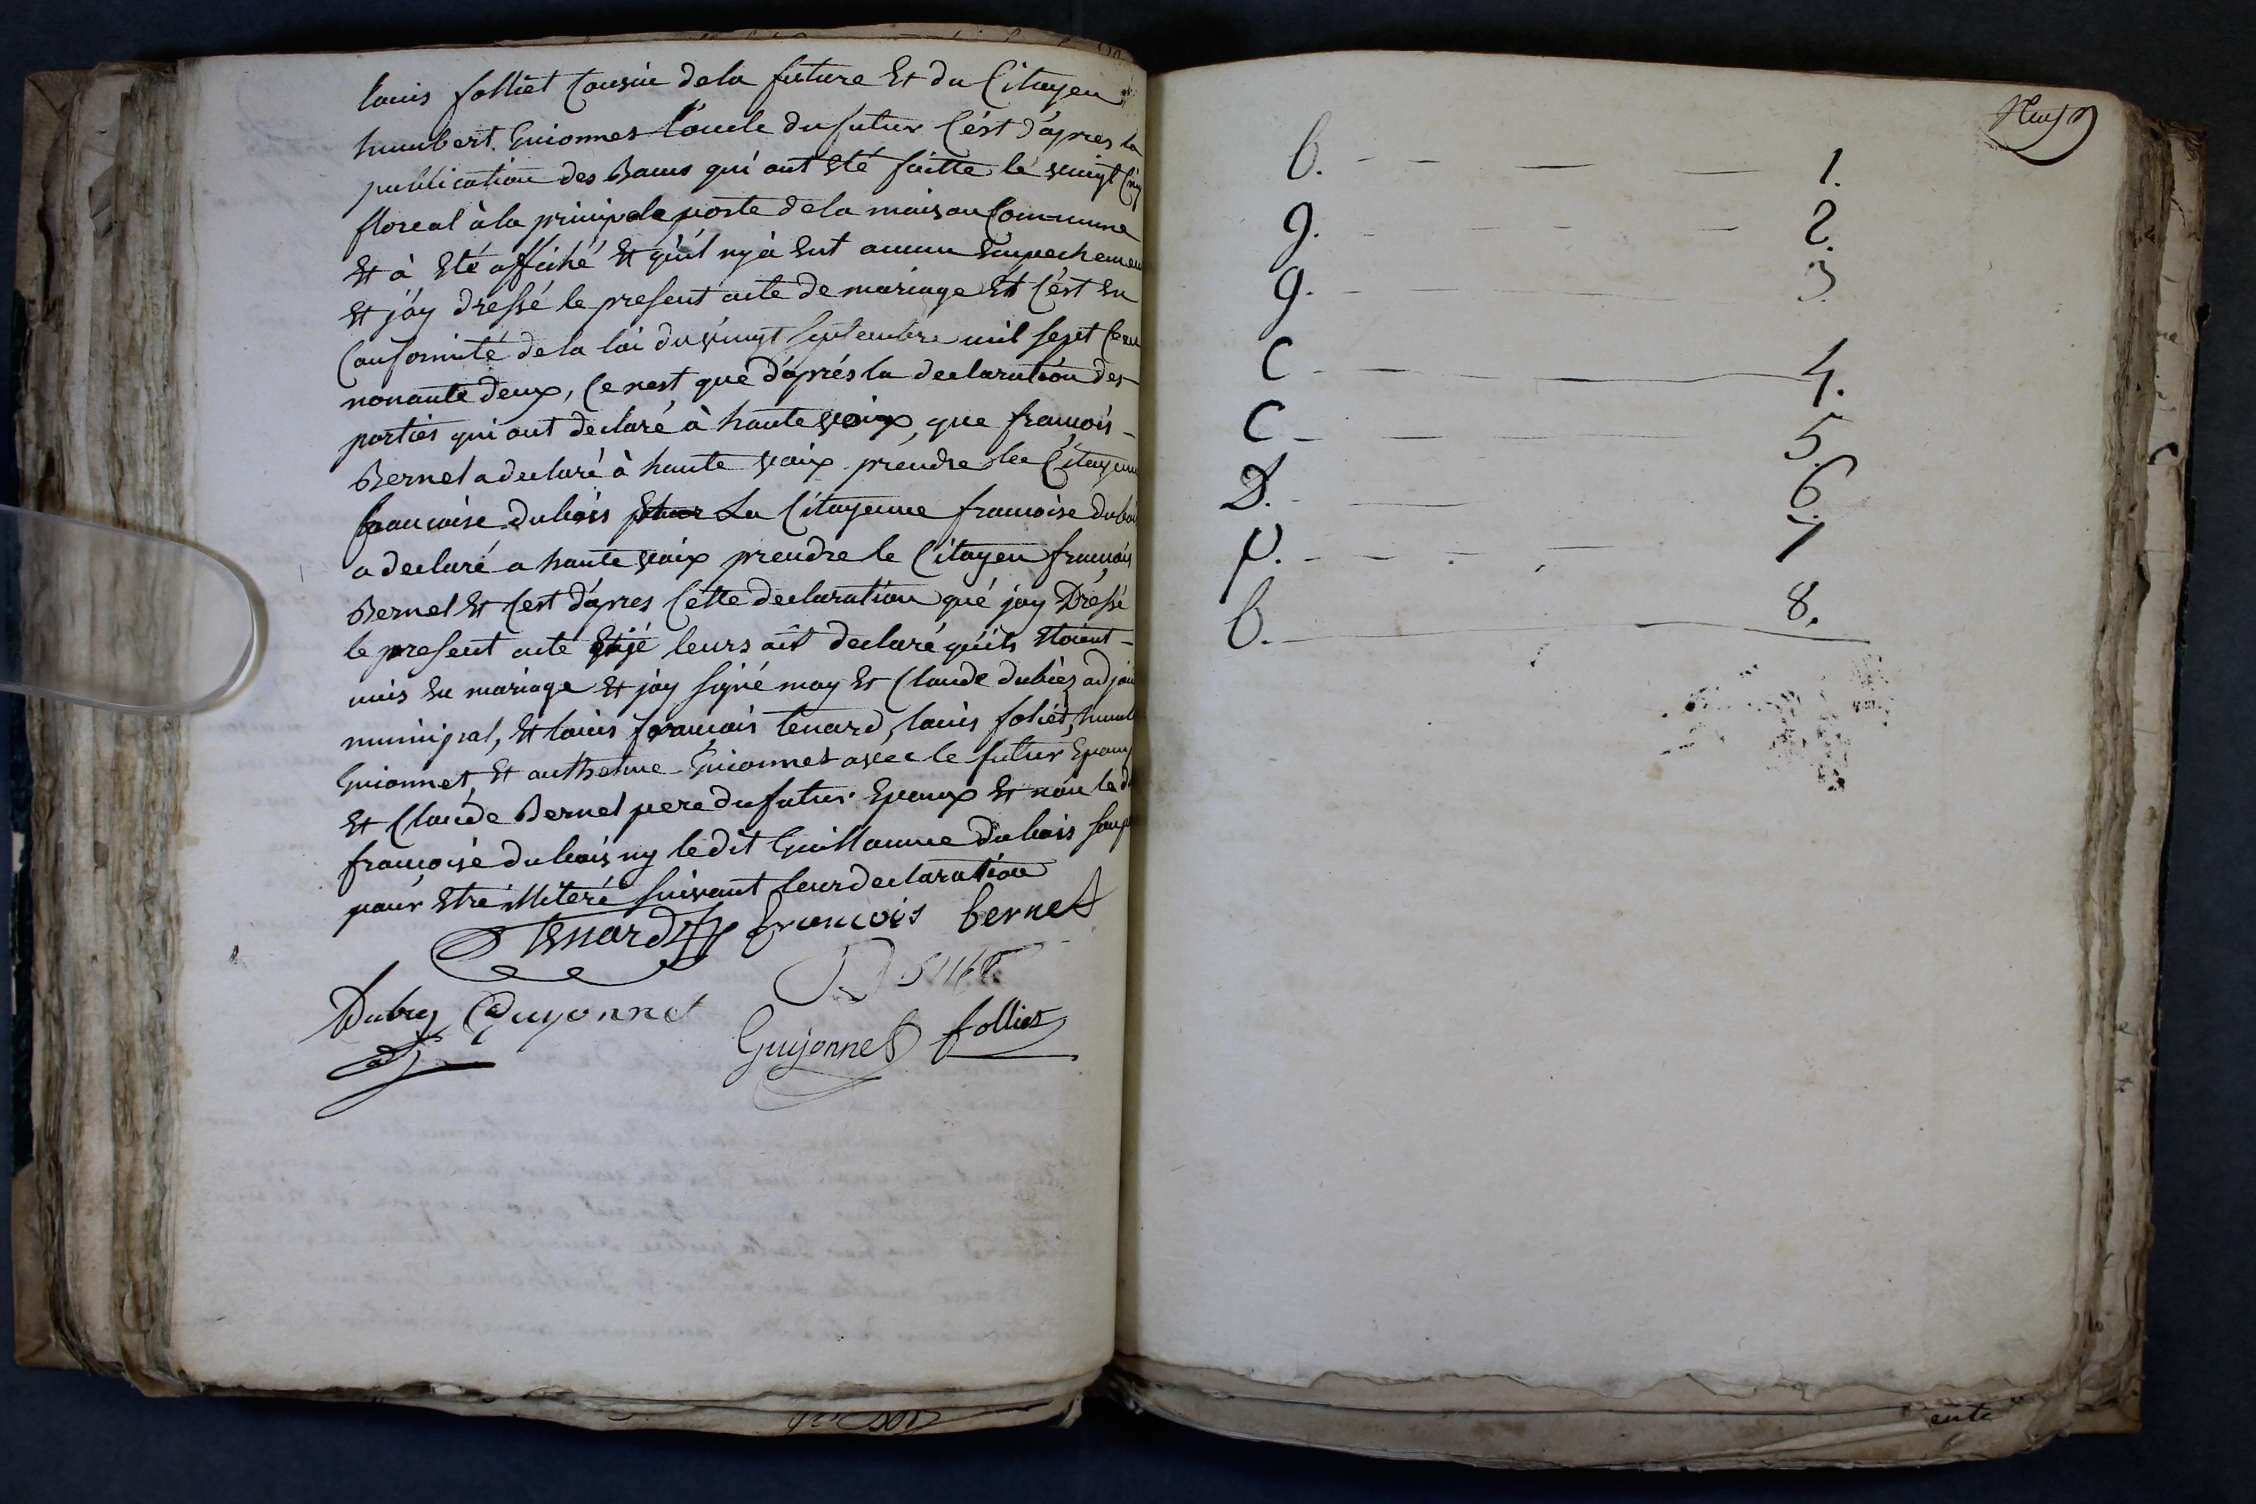 louis folliet Cousin de la future Et du Citoyen
humbert Guionnet L'oncle du futur C'ést d'apres la
publication des Bans qui ont Eté faitte lé vingt Cinq
floreal à la principale porte de la maison Commune
Et à Eté affiché Et qu'il ny à Eut aucun Empechemen
Et j'áy dressé le present acte de mariage Et C'ést En
Conformité de la loi du vingt septembre mil sept Cent
nonante deux, Ce nest que d'áprés la declaration des
parties qui ont declaré à haute voix, que francois
Bernet a declaré à haute voix prendre la Citoyenne
francoise dubois La Citoyenne francoise dubois
a declaré a haute voix prendre le Citoyen francois
Bernet Et C'est d'ápres Cétte declaration qué jay Dréssé
le present acte Etjé leurs ait declaré qu'ils Etoient
unis En mariage Et jáy signé moy Et Claude dubiez adjoin
municipal, Et louis francois tenard, louis foliét, humb
Guionnet, Et anthelme Guionnet avec le futur Epoux
Et Claude Bernet pere du futur Epoux Et non la d
francoisé dubois ny ledit Guillaume Dubois
pour Etre illiteré suivant leur declaration
tenard francois bernet
Guyonnet
Guyonnet folliet
b. 1.
g. 2.
g. 3.
C 4.
C 5.
D. 6.
p. 7
b. 8.
ente